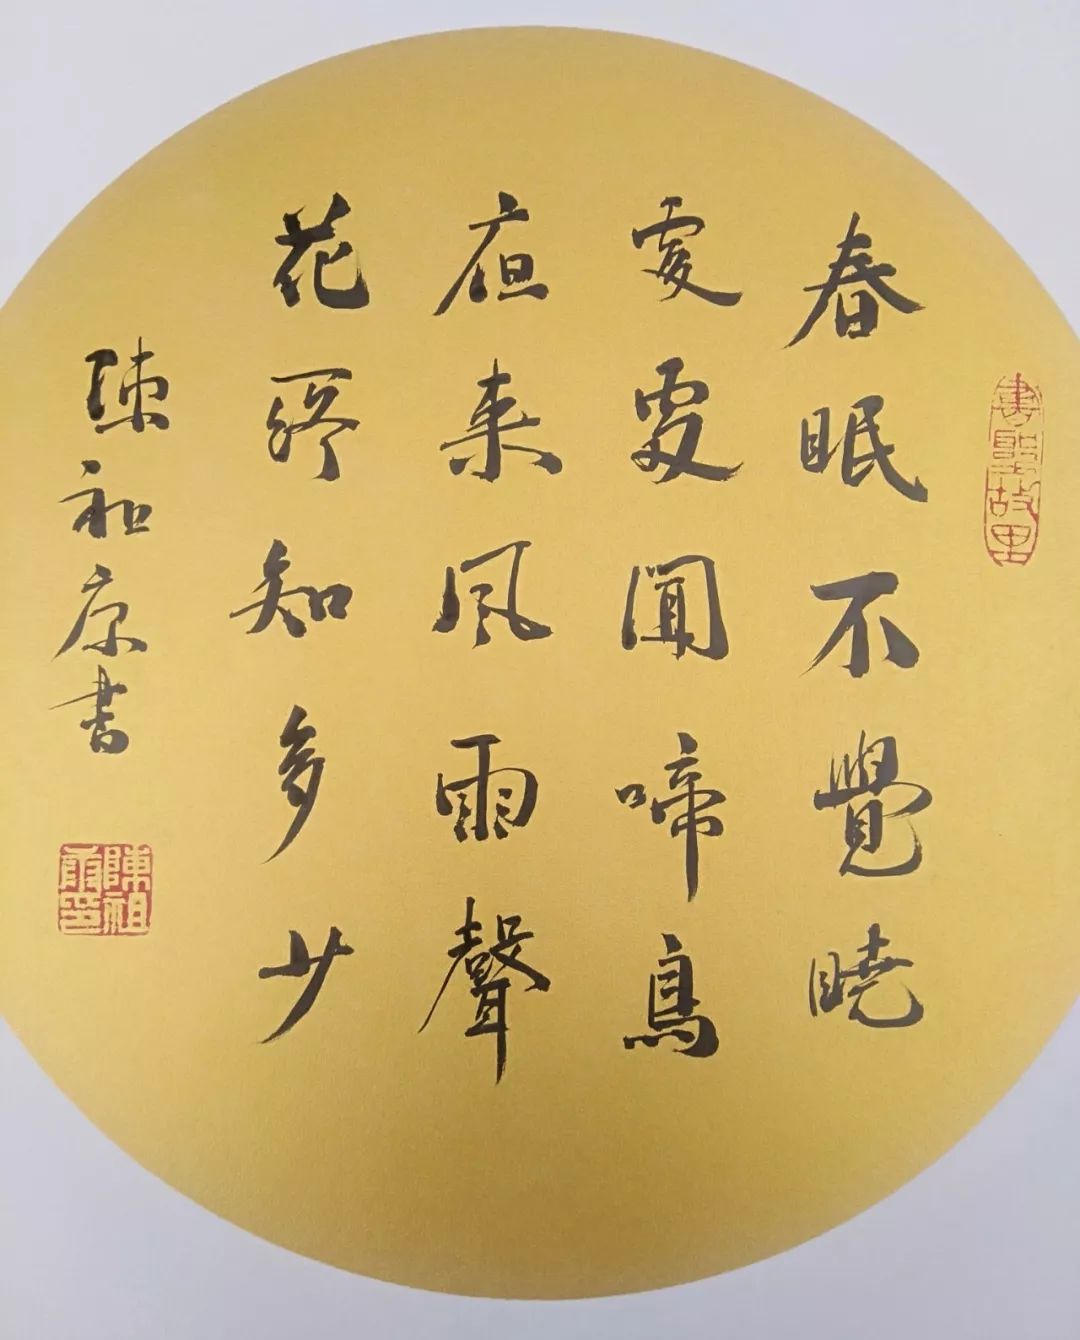 書聖故里
春眠不覺曉
處處聞啼鳥
来風雨聲
花知多少
陳祖康書
陳祖康印